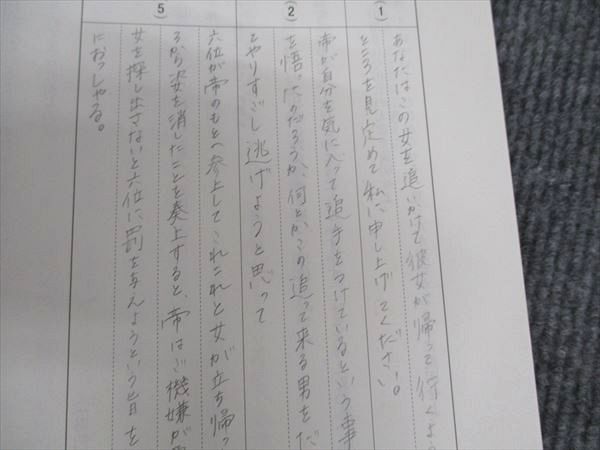 (1)
あなたはこの女を追いかけて彼女が帰って行くよ
ところを見定めて私に申し上げてください。
(2)
帝が自分を気に入って追手をつけているという事
を悟ったのだろうか、何とかこの追って来る男をだ
やりすごし逃げようと思って
5)
六位が帝のもとへ参上してこれこれと女が立ち帰っ
ろから姿を消したことを奏上すると、帝はご機嫌が
女を探し出さないと六位に罰を与えようという旨を
におっしゃる。